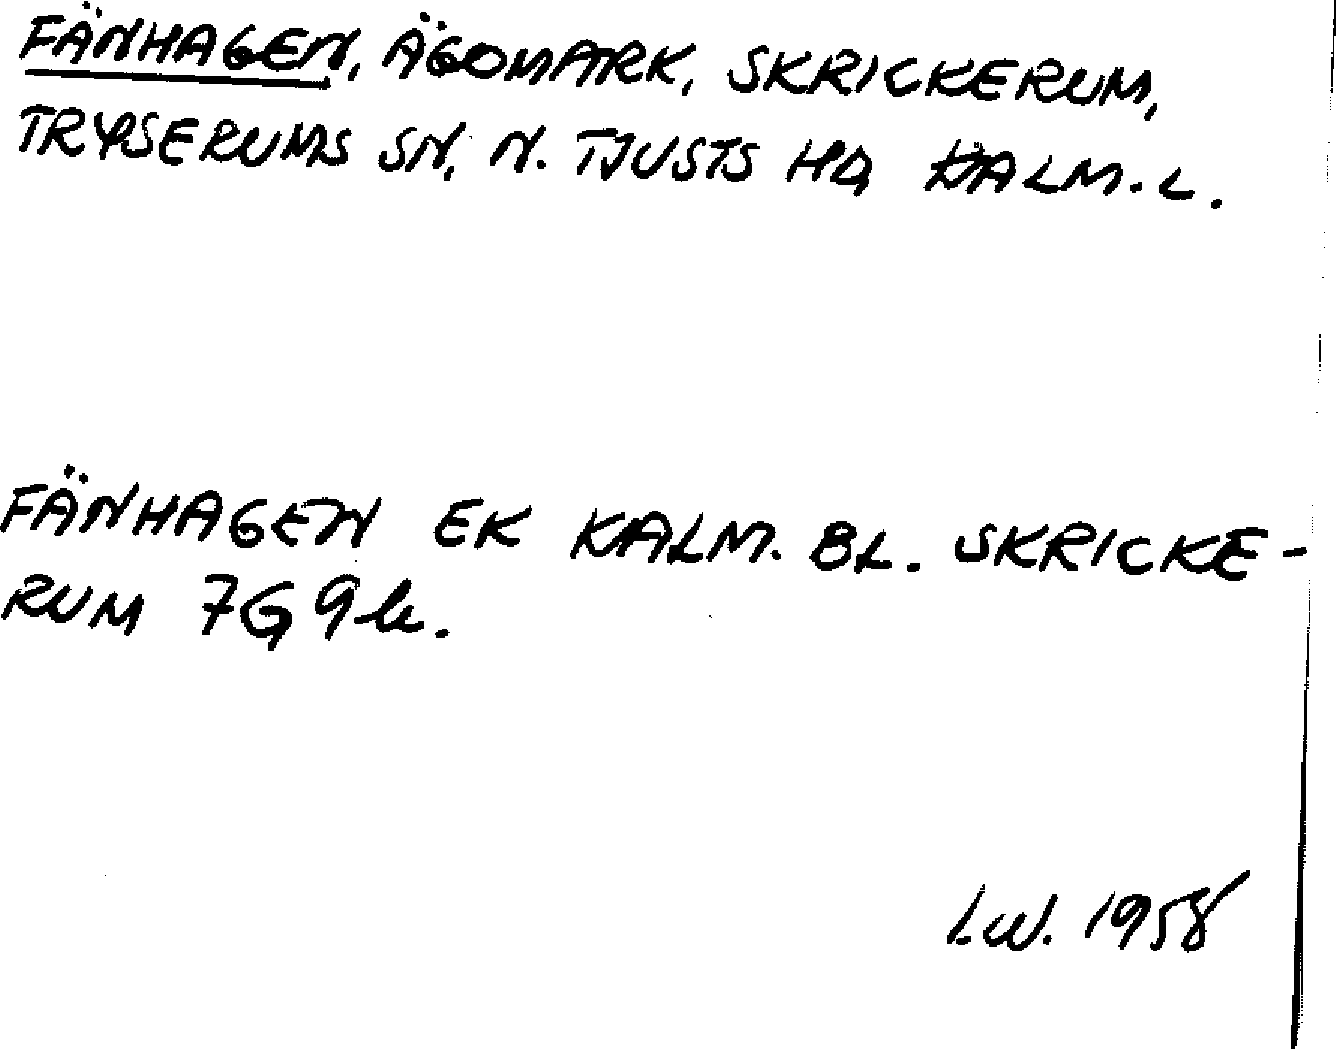 FÄNHAGEN, ÄGOMARK, SKRICKERUM,
TRYSERUMS SN, N. TJUSTS HD KALM. L.
FÄNHAGEN EK KALM. BL. SKRICKE-
RUM 7G 9b.
LW. 1958